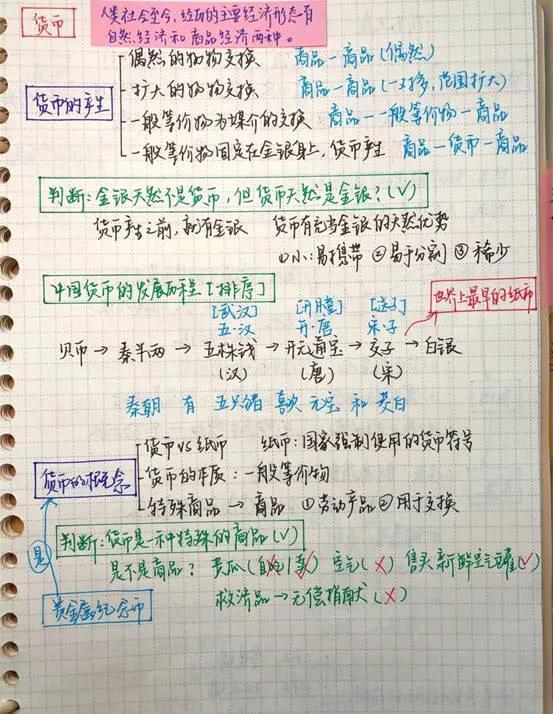 货币
人类社会至今,经历的主要经济形态有
自然经济和商品经济两种。
货币的产生
偶然的物物交换 商品—商品(偶然)
扩大的物物交换 商品—商品(一对多,范围扩大)
一般等价物为媒介的交换 商品—一般等价物—商品
一般等价物固定在金银身上,货币产生 商品—货币—商品
判断:金银天然不是货币,但货币天然是金银?(√)
货币产生之前,就有金银 货币有充当金银的天然优势
①小:易携带 ②易于分割 ③稀少
中国货币的发展历程[排序]
世界上最早的纸币
[武汉] [开膛] [送子]
五·汉 开·唐 宋·子
贝币→秦半两→五株钱→开元通宝→交子→白银
(汉) (唐) (宋)
秦朝 有 五只猪 喜欢 元宝 和 美白
货币的概念
货币vs纸币 纸币:国家强制使用的货币符号
货币的本质:一般等价物
特殊商品→商品 ①劳动产品②用于交换
判断:货币是一种特殊的商品(√)
是不是商品? 黄瓜(自吃×/售√) 空气(×) 售卖新鲜空气罐(√)
救济品→无偿捐献(×)
是
贵金属纪念币